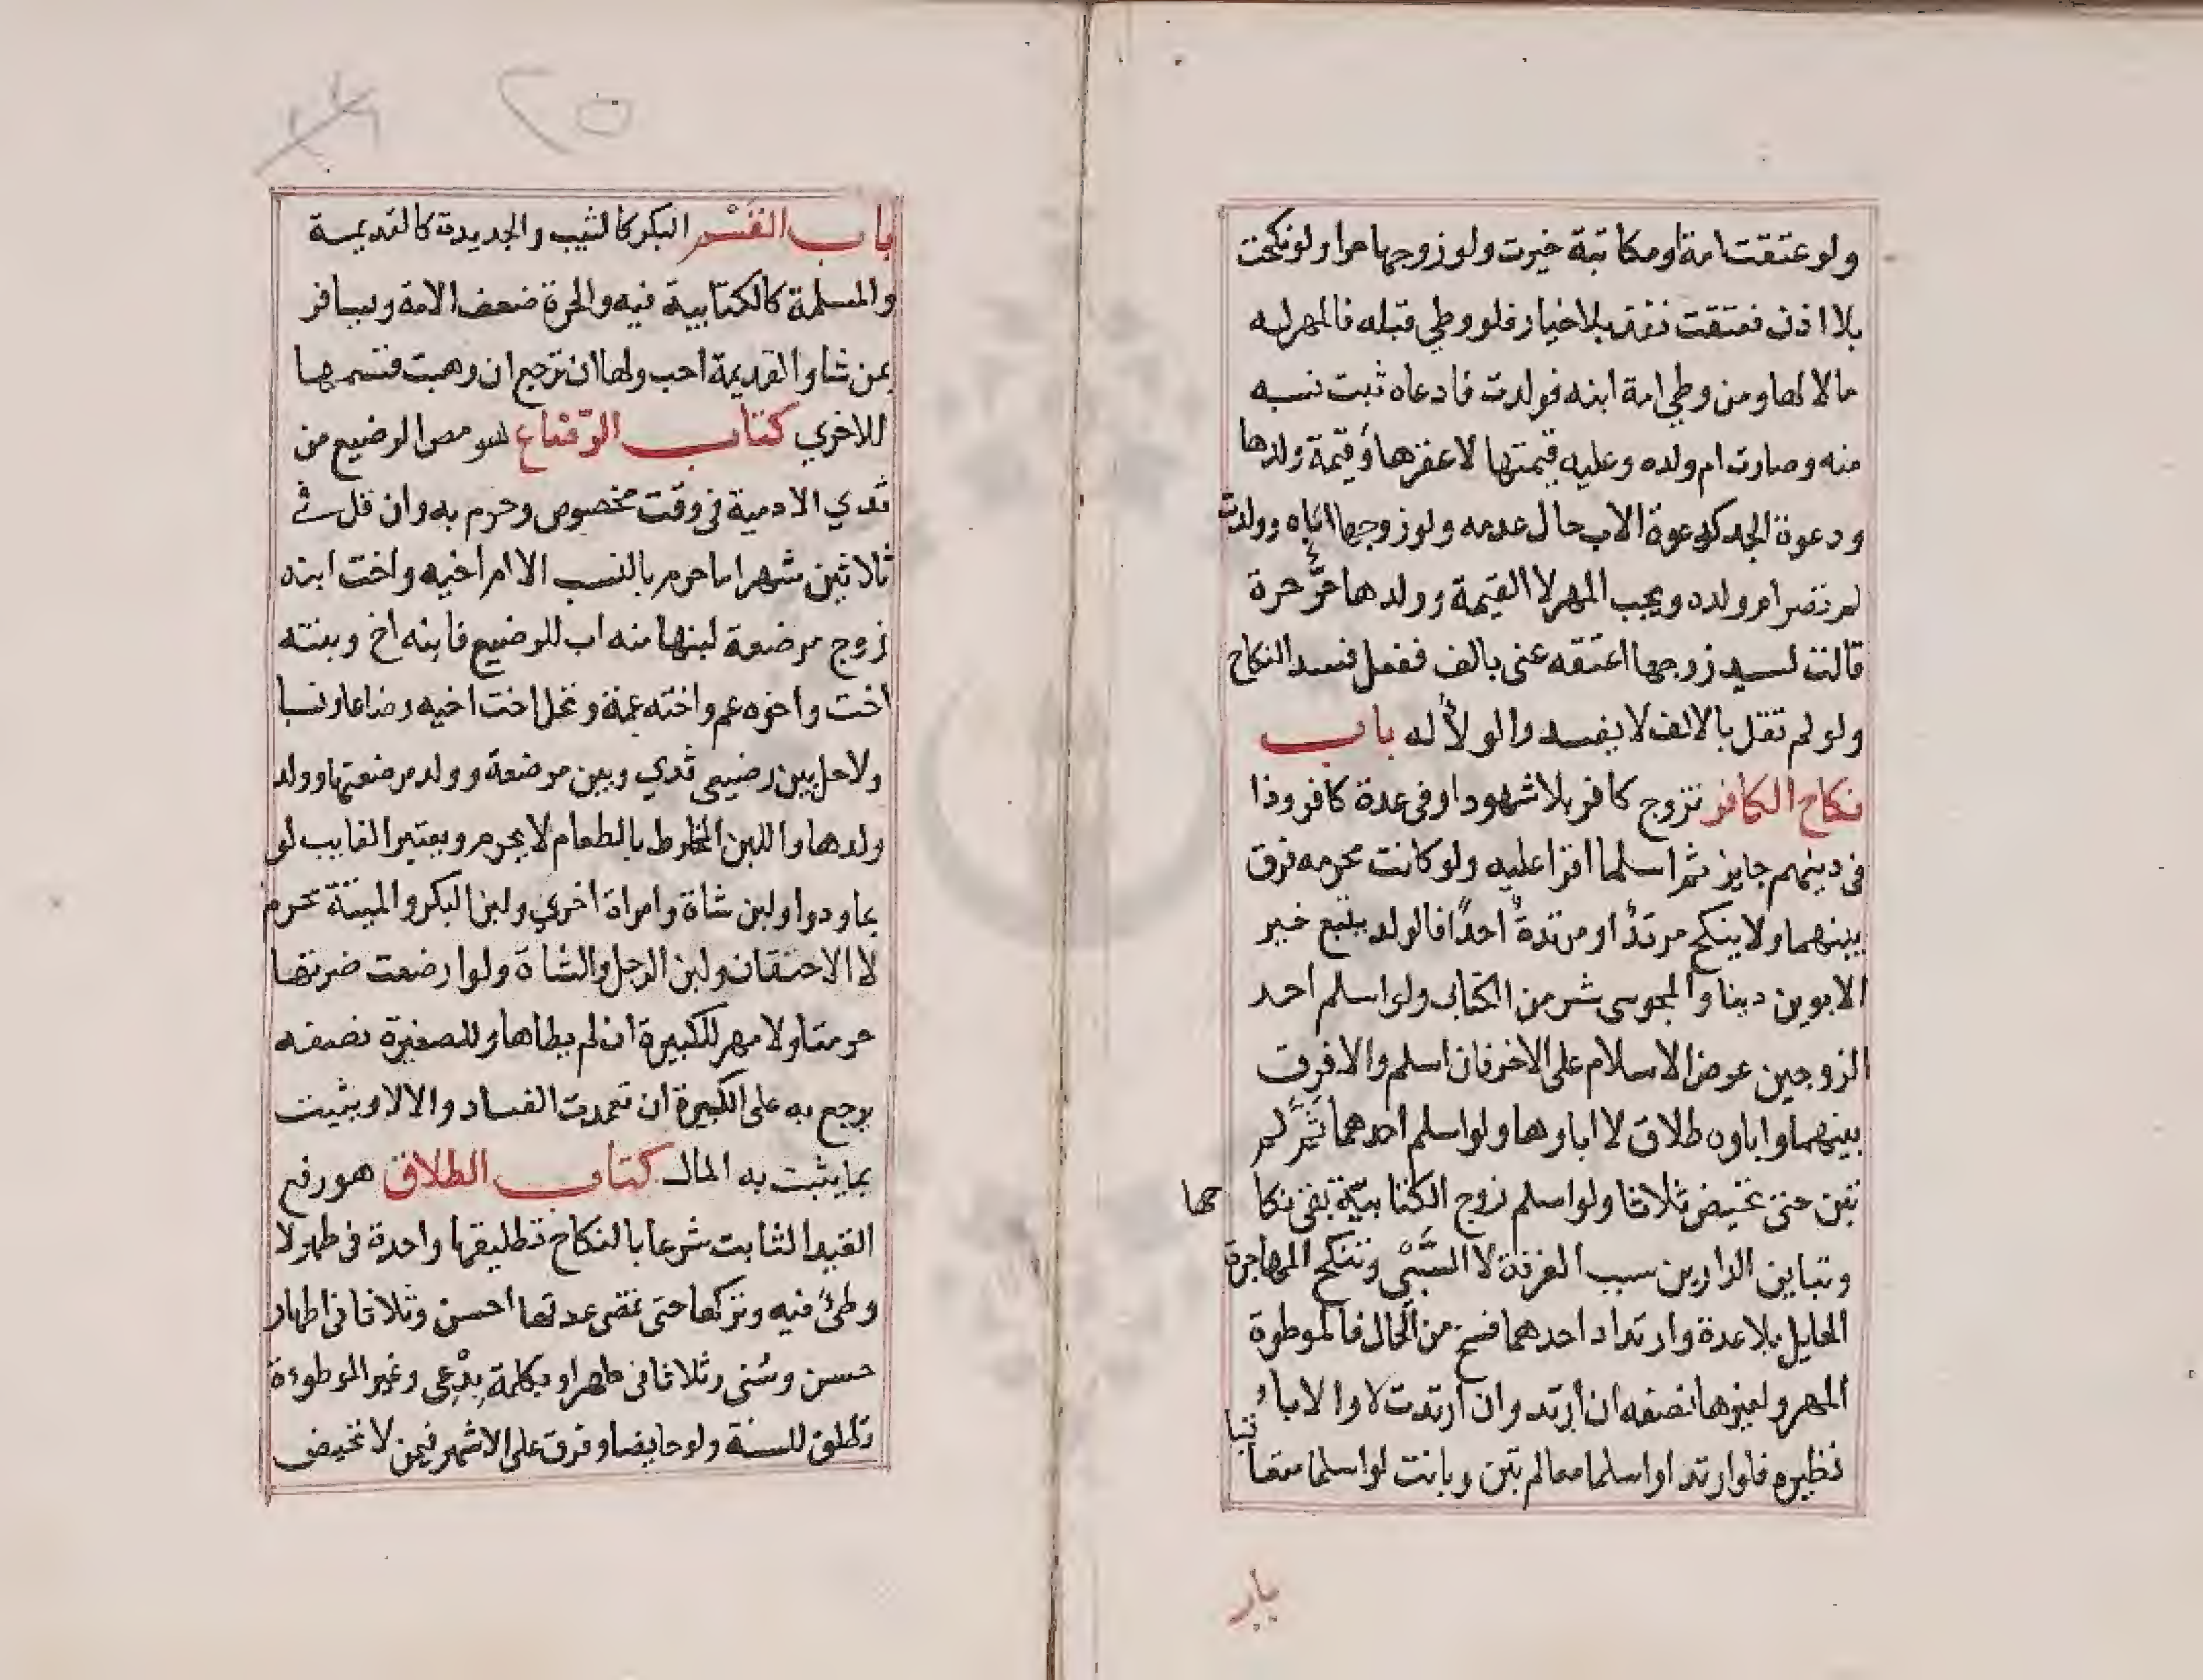 ولو عتقت امة او مكاتبة خيرت ولو زوجها حرا ولو نكحت
بلا اذن فعتقت نفذ بلا خيار فلو وطي قبله فالمهر له
مالا لها ومن وطي امة ابنه فولدت فادعاه ثبت نسبه
منه وصارت ام ولده وعليه قيمتها لا عقرها وقيمة ولدها
ودعوة الجد كدعوة الاب حال عدمه ولو زوجها اباه وولدت
لم تصر ام ولده ويجب المهر لا القيمة وولدها حر حرة
قالت لسيد زوجها اعتقه عنى بالف ففعل فسد النكاح
ولو لم تقل بالالف لا يفسد والولأ له باب
نكاح الكافر تزوج كافر بلا شهود او فى عدة كافر وذا
فى دينهم جايز ثم اسلما اقرا عليه ولو كانت محرمه فرق
بينهما ولا ينكح مرتد او مرتدة احدا فالولد يتبع خير
الابوين دينا والمجوسى شر من الكتاب ولو اسلم احد
الزوجين عرض الاسلام على الاخر فان اسلم والا فرق
بينهما واباوه طلاق لا اباوها ولو اسلم احدهما ثم لم
تبن حتى تحيض ثلاثا ولو اسلم زوج الكتابية بقى نكا حها
وتباين الدارين سبب الفرقة لا السبى وتنكح المهاجرة
الحايل بلا عدة وارتداد احدهما فسخ من الحال فالموطوة
المهر ولغيرها نصفه ان ارتد وان ارتدت لا والابأ
نظيره فلو ارتدا او اسلما معا لم تبن وبانت لو اسلما متعا
تبا
باب
٢٥
باب القسم البكر كالثيب والجديدة كالقديمة
والمسلمة كالكتابية فيه والحرة ضعف الامة ويسافر
بمن شا والقديمة احب ولها ان ترجع ان وهبت قسمها
للاخري كتاب الرضاع هو مص الرضيع من
ثدي الادمية فى وقت مخصوص وحرم به وان قل فى
ثلاثين شهرا ما حرم بالنسب الا ام اخيه واخت ابنه
زوج مرضعة لبنها منه اب للرضيع فابنه اخ وبنته
اخت واخوه عم واخته عمة وتحل اخت اخيه رضاعا ونسبا
ولا حل بين رضيعى ثدي وبين مرضعة وولد مرضعتها وولد
ولدها واللبن المخلوط بالطعام لا يحرم ويعتبر الغالب لو
بماء ودوا ولبن شاة وامراة اخري ولبن البكر والميتة محرم
لا الاحتقان ولبن الرجل والشاة ولو ارضعت ضرتها
حرمتا ولا مهر للكبيرة ان لم يطاها وللصغيرة نصفه
يرجع به على الكبيرة ان تعمدت الفساد والا لا ويثبت
بما يثبت به المال كتاب الطلاق هو رفع
القيد الثابت شرعا بالنكاح تطليقها واحدة فى طهر لا
وطئ فيه وتركها حتى تمضى عدتها احسن وثلاثا فى اطهار
حسن وسنى وثلاثا فى طهر او بكلمة بدعى وغير الموطوءة
تطلق للسنة ولو حايضا وفرق على الاشهر فيمن لا تحيض